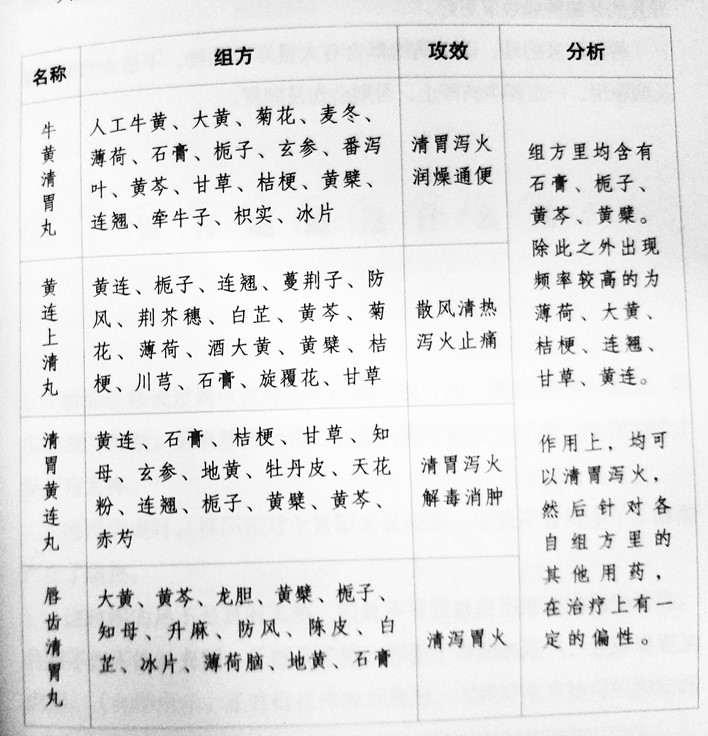 名称 组方 攻效 分析
牛黄清胃丸
人工牛黄、大黄、菊花、麦冬、
薄荷、石膏、栀子、玄参、番泻
叶、黄芩、甘草、桔梗、黄檗、
连翘、牵牛子、枳实、冰片
清胃泻火
润燥通便
黄连上清丸
黄连、栀子、连翘、蔓荆子、防
风、荆芥穗、白芷、黄芩、菊
花、薄荷、酒大黄、黄檗、桔
梗、川芎、石膏、旋覆花、甘草
散风清热
泻火止痛
清胃黄连丸
黄连、石膏、桔梗、甘草、知
母、玄参、地黄、牡丹皮、天花
粉、连翘、栀子、黄檗、黄芩、
赤芍
清胃泻火
解毒消肿
唇齿清胃丸
大黄、黄芩、龙胆、黄檗、栀子、
知母、升麻、防风、陈皮、白
芷、冰片、薄荷脑、地黄、石膏
清泻胃火
组方里均含有
石膏、栀子、
黄芩、黄檗。
除此之外出现
频率较高的为
薄荷、大黄、
桔梗、连翘、
甘草、黄连。
作用上，均可
以清胃泻火，
然后针对各
自组方里的
其他用药，
在治疗上有一
定的偏性。